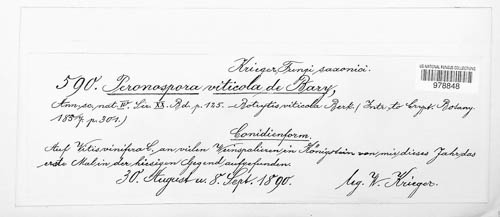 Krieger, Fungi saxonici.
US NATIONAL FUNGUS COLLECTIONS
978848
590. Peronospora viticola de Bary,
Ann. sc. nat. IV. Ser. XX. Bd. p. 125. Botrytis viticola Berk. (Intr. to Crypt. Botany.
1857. p. 301.)
Conidienform.
Auf Vitis vinifera L. an vielen Weinspalieren in Königstein von mir dieses Jahr das
erste Mal in der hiesigen Gegend aufgefunden.
30. August u. 8. Sept. 1890. leg. W. Krieger.